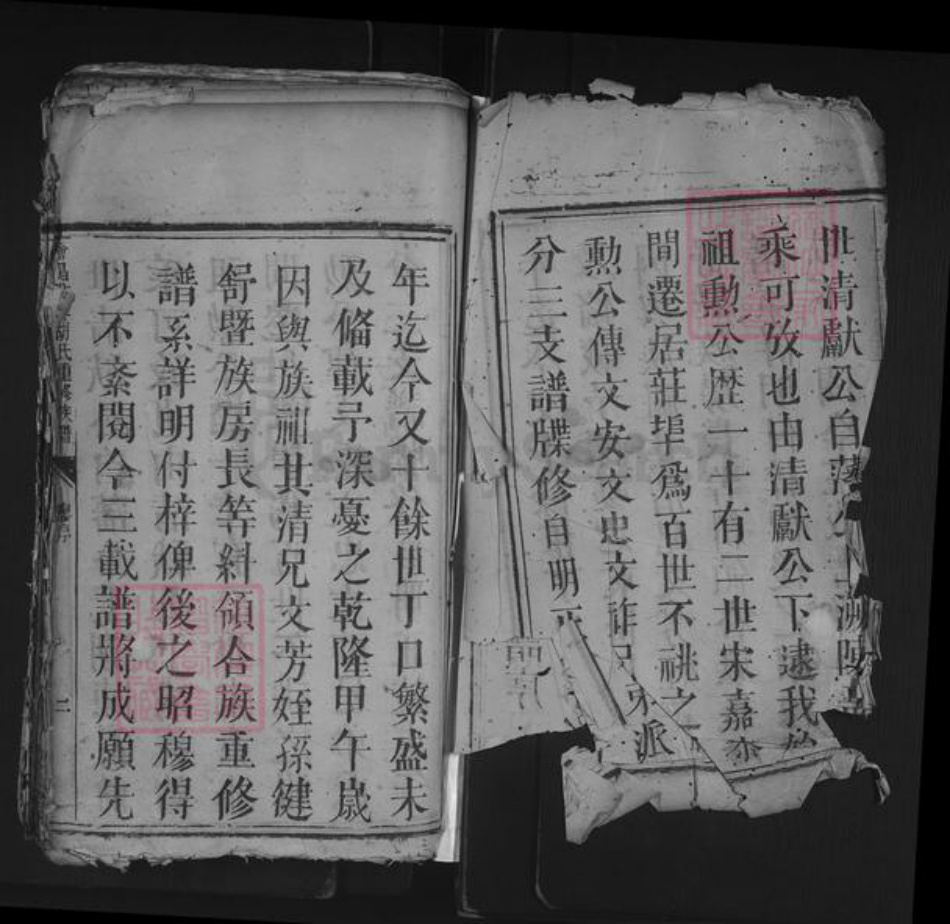 世清獻公自
乘可攷也由清獻公下逮我
祖勲公歴一十有二世宋嘉
間遷居莊埠爲百世不祧之
勲公傳文安文忠文 派
分三支譜牒修自明
年迄今又十餘世丁口繁盛未
及俻載予深憂之乾隆甲午嵗
因與族祖其清兄文芳姪孫健
舒暨族房長等糾領合族重修
譜系詳明付梓俾後之昭穆得
以不紊閱今三載譜將成願先
氏重修族譜
二